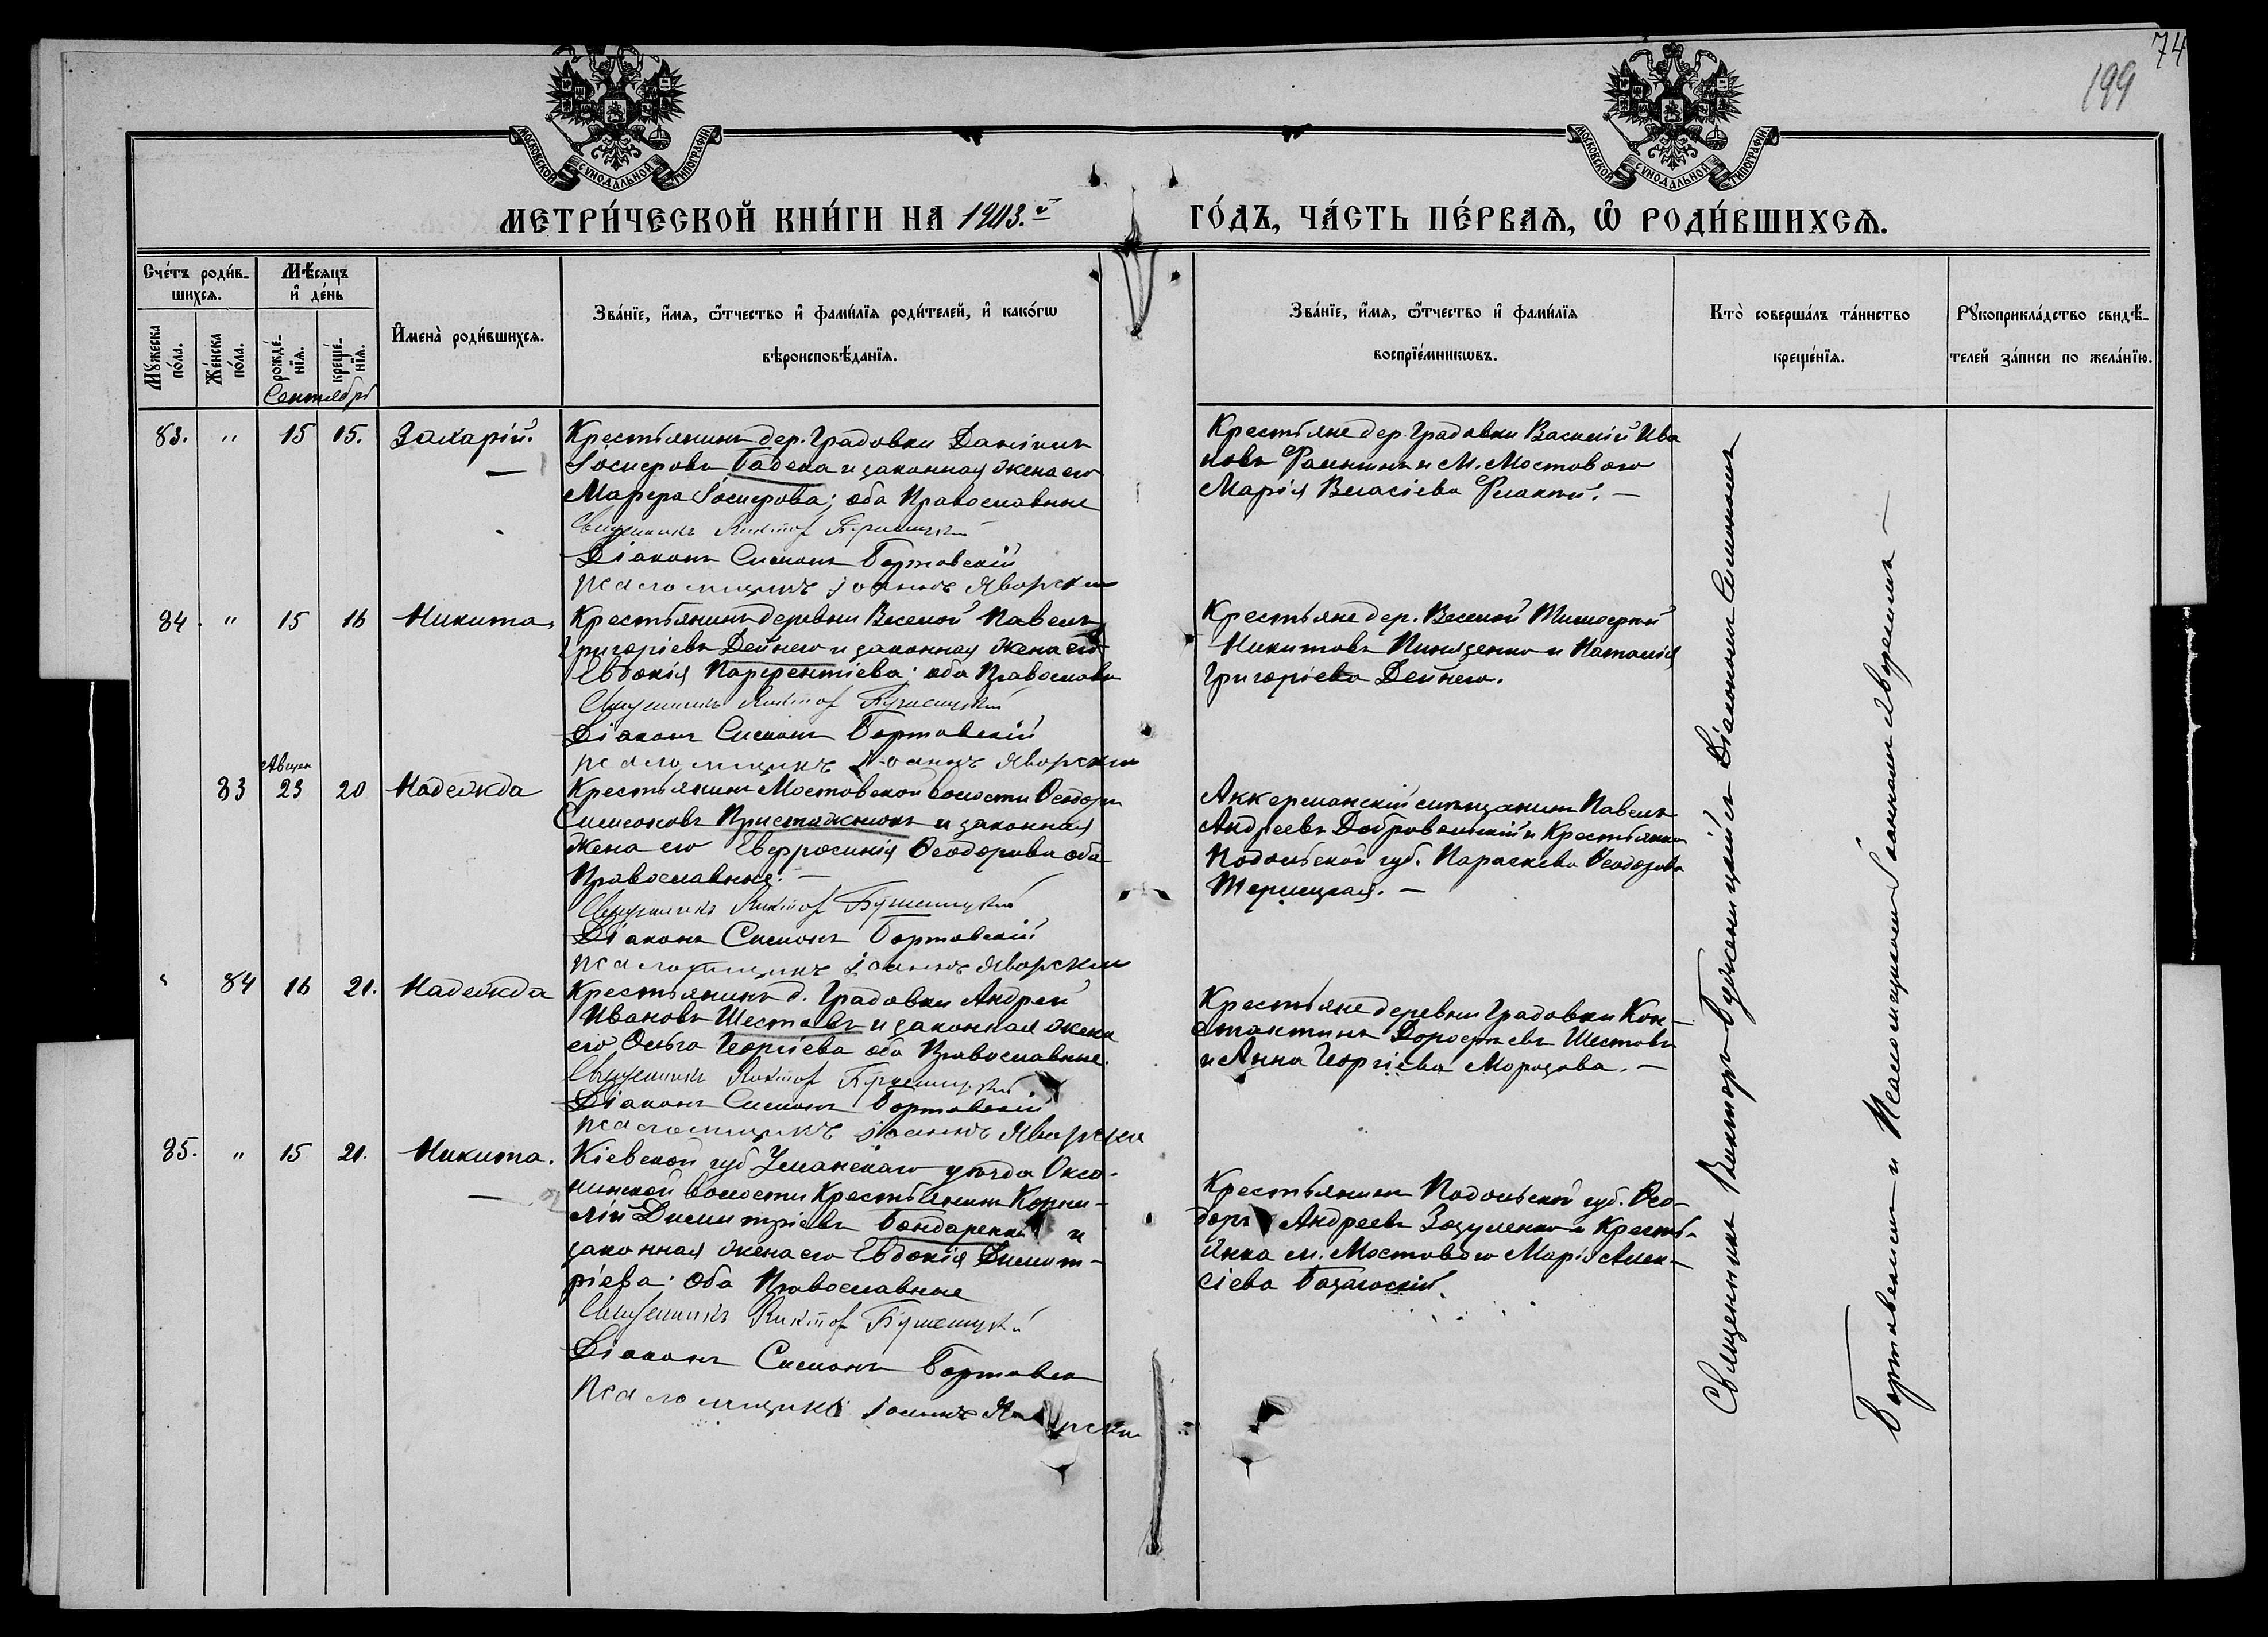 74
199
МОСКОВСКОЙ СѴНОДАЛЬНОЙ ТИПОГРАФІИ
МОСКОВСКОЙ СѴНОДАЛЬНОЙ ТИПОГРАФІИ
МЕТРИ́ЧЕСКОЙ КНИ́ГИ НА 1903.й ГО́ДЪ, ЧА́СТЬ ПЕ́РВАЯ, Ѡ РОДИ́ВШИХСЯ.
Сче́тъ роди́в-
шихся.
Мѣ́сяцъ
и де́нь
Му́жеска
по́ла.
Же́нска
по́ла.
рожде́-
нїя.
креще́-
нїя.
Сентябрь
Имена̀ роди́вшихся.
Зва́нїе, и́мя, ѻ҆́тчество и҆ фами́лїя роди́телей, и҆ како́гѡ
вѣроисповѣ́данїя.
Зва́нїе, и́мя, ѻ҆́тчество и҆ фами́лїя
воспрїе́мникѡвъ.
Кто̀ соверша́лъ та́инство
креще́нїя.
Рꙋкоприкла́дство свидѣ́-
телей за́писи по жела́нїю.
83. " 15 15. Захарій.
Крестьянинъ дер. Градовки Даніилъ
Іосифовъ и законная жена его
Марфа Іосифова; оба Православные
Священникъ Викторъ
Діаконъ Симонъ Бортовскій
Псаломщикъ Іоаннъ Яворскій
Крестьяне дер. Градовки Василій Ива
новъ и М. Мостового
Марія Власіева
84. " 15 16 Никита.
Крестьянинъ деревни Веселой Павелъ
Григоріевъ Дейнего и законная жена его
Евдокія Парфентіева; оба Православн
Священникъ Викторъ
Діаконъ Симонъ Бортовскій
Псаломщикъ Іоаннъ Яворскій
Крестьяне дер. Веселой Тимофей
Никитовъ и Наталія
Григоріева Дейнего.
83 Август 23 20 Надежда
Крестьянинъ Мостовской волости Ѳеодоръ
Симеоновъ Пристажнюкъ и законная
жена его Евфросинія Ѳеодорова оба
Православные. —
Священникъ Викторъ
Діаконъ Симонъ Бортовскій
Псаломщикъ Іоаннъ Яворскій
Аккерманскій мѣщанинъ Павелъ
Андреевъ Добровольскій и Крестьянка
Подольской губ. Параскева Ѳеодорова
" 84 16 21. Надежда
Крестьянинъ д. Градовки Андрей
Ивановъ Шестовъ и законная жена
его Ольга Георгіева оба Православные.
Священникъ Викторъ
Діаконъ Симонъ Бортовскій
Псаломщикъ Іоаннъ Яворскій
Крестьяне деревни Градовки Кон-
стантинъ Дорофеевъ Шестовъ
и Анна Георгіева Морозова. —
85. " 15 21. Никита.
Кіевской губ Уманскаго уѣзда Окса-
нинской волости Крестьянинъ Корни-
лій Димитріевъ Бондаренко и
законная жена его Евдокія Димит-
ріева; оба Православные
Священникъ Викторъ
Діаконъ Симонъ Бортовск
Псаломщикъ Іоаннъ
Крестьянинъ Подольской губ. Ѳео-
доръ Андреевъ Зозуленко и Кресть-
янка м. Мостового Марія Алек-
сіева
Священникъ Викторъ съ Діакономъ Симономъ
Бортовскимъ и Псаломщикомъ Іоанномъ Яворскимъ —